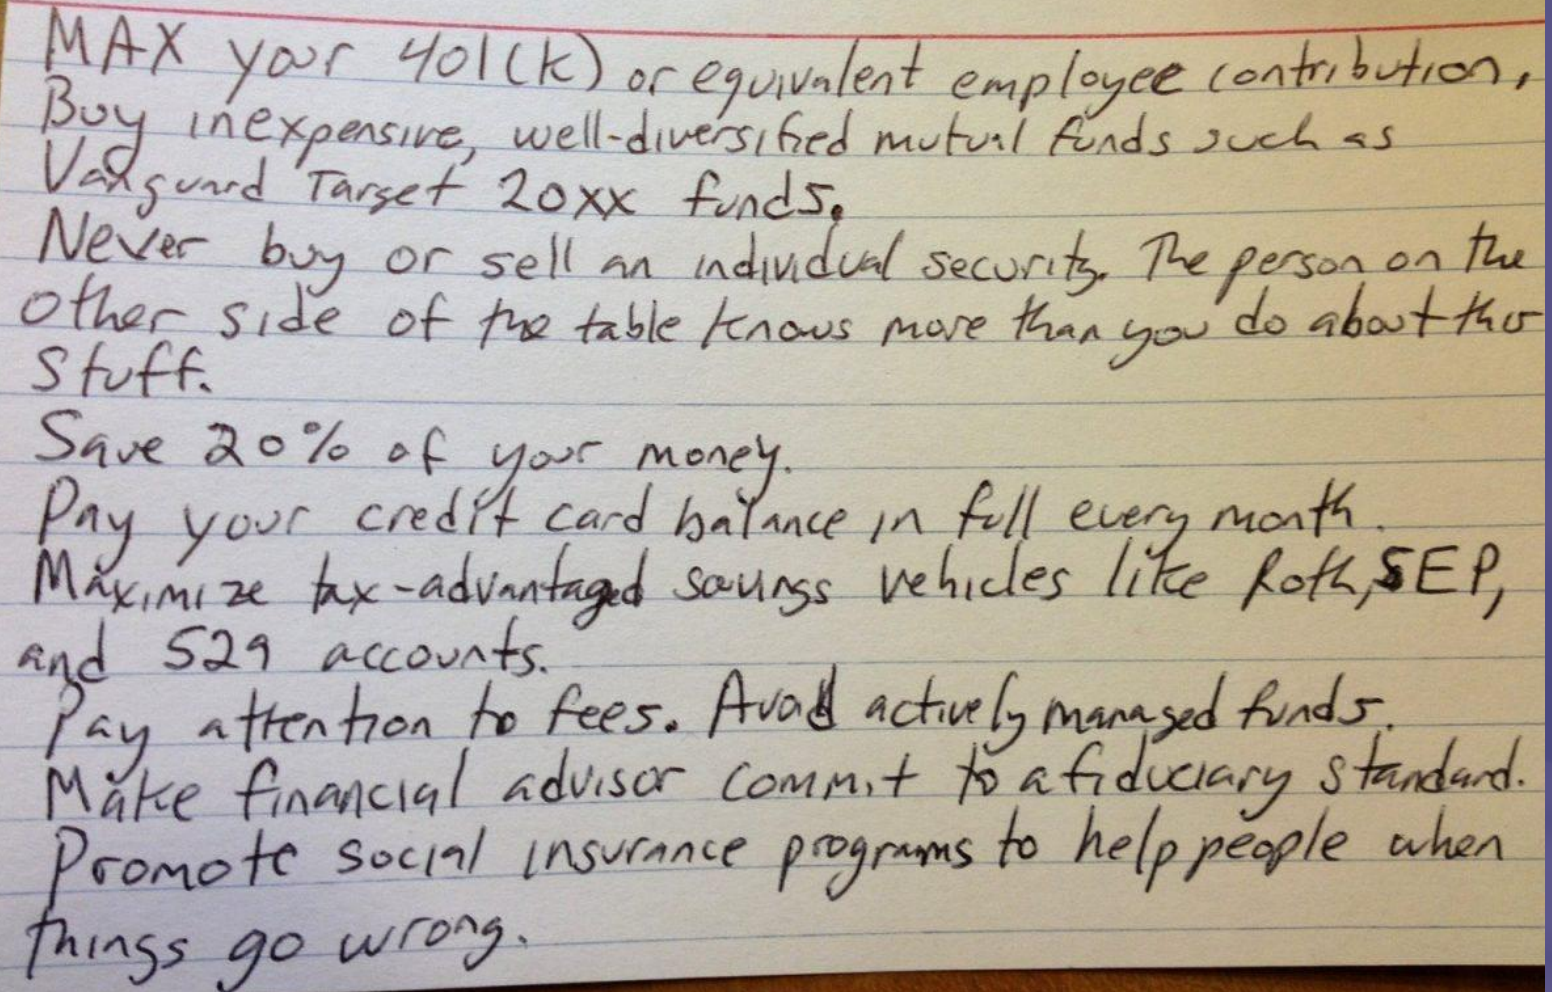 MAX your 401(k) or equivalent employee contribution.
Buy inexpensive, well-diversified mutual funds such as
Vanguard Target 20xx funds.
Never buy or sell an individual security. The person on the
other side of the table knows more than you do about this
stuff.
Save 20% of your money.
Pay your credit card balance in full every month.
Maximize tax-advantaged savings vehicles like Roth, SEP,
and 529 accounts.
Pay attention to fees. Avoid actively managed funds.
Make financial advisor commit to a fiduciary standard.
Promote social insurance programs to help people when
things go wrong.